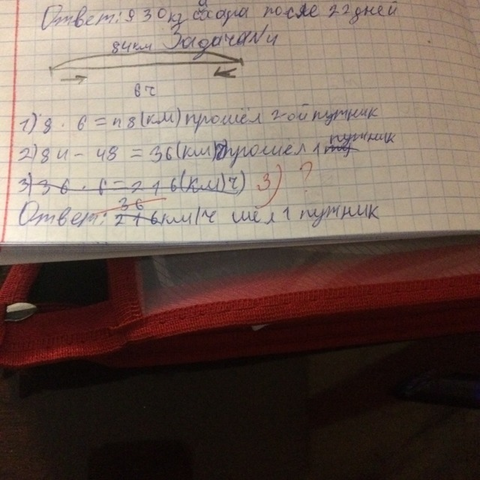 Ответ: 930 кг сахара после 22 дней
Задача №4
84 км
6 ч
1) 8 · 6 = 48 (км) прошёл 2-ой путник
2) 84 - 48 = 36 (км) прошел 1 путник
3) 36 · 6 = 216 (км/ч) 3) ?
36
Ответ: 216 км/ч шёл 1 путник